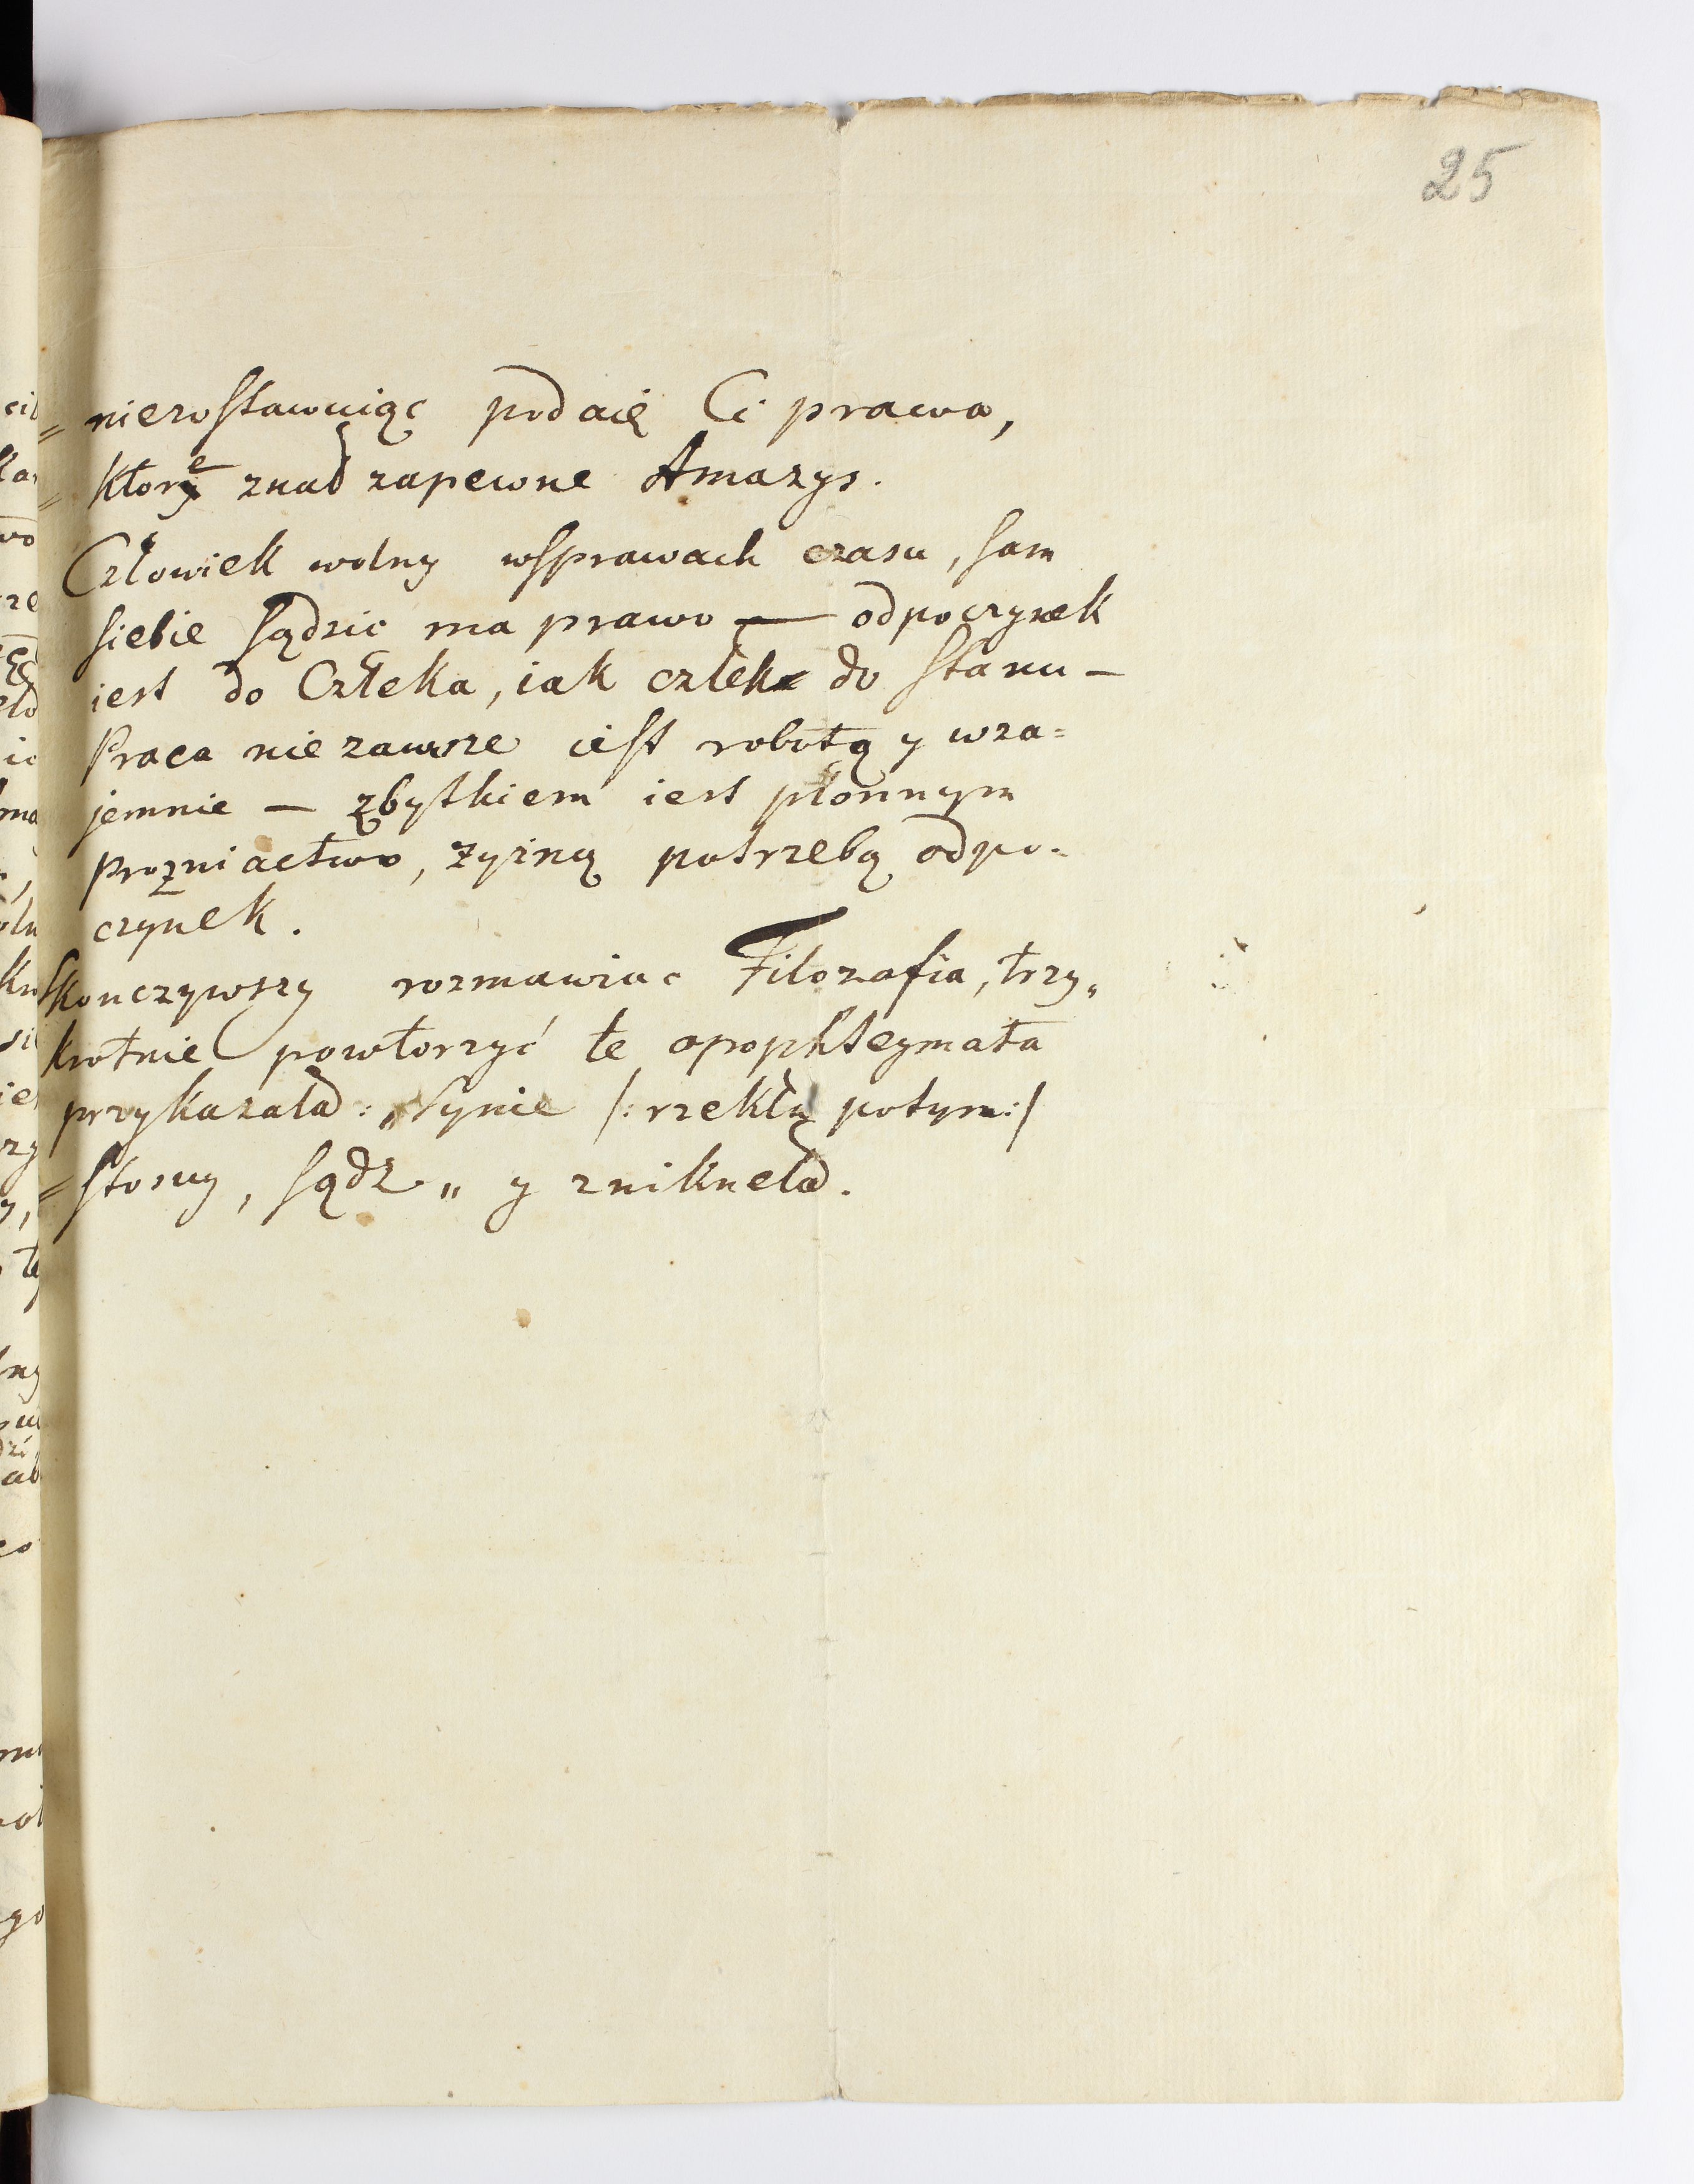 25
niezostawuiąc podaię Ci prawa,
ktore znał zapewne Amazys.
Człowiek wolny wsprawach czasu, sam
siebie sądzic ma prawo — odpoczynek
iest do Człeka, iak człek do stanu —
Praca nie zawsze iest robotą y wza=
jemnie — zbytkiem iest płonnym
prozniactwo, zyzną potrzebą odpo=
czynek.
Skonczywszy rozmawiac Filozofia, trzy„
krotnie powtorzyć te apophtegmata
przykazała: „Nynie /: rzekła potym :/
stosuy, sądz„ y znikneła.